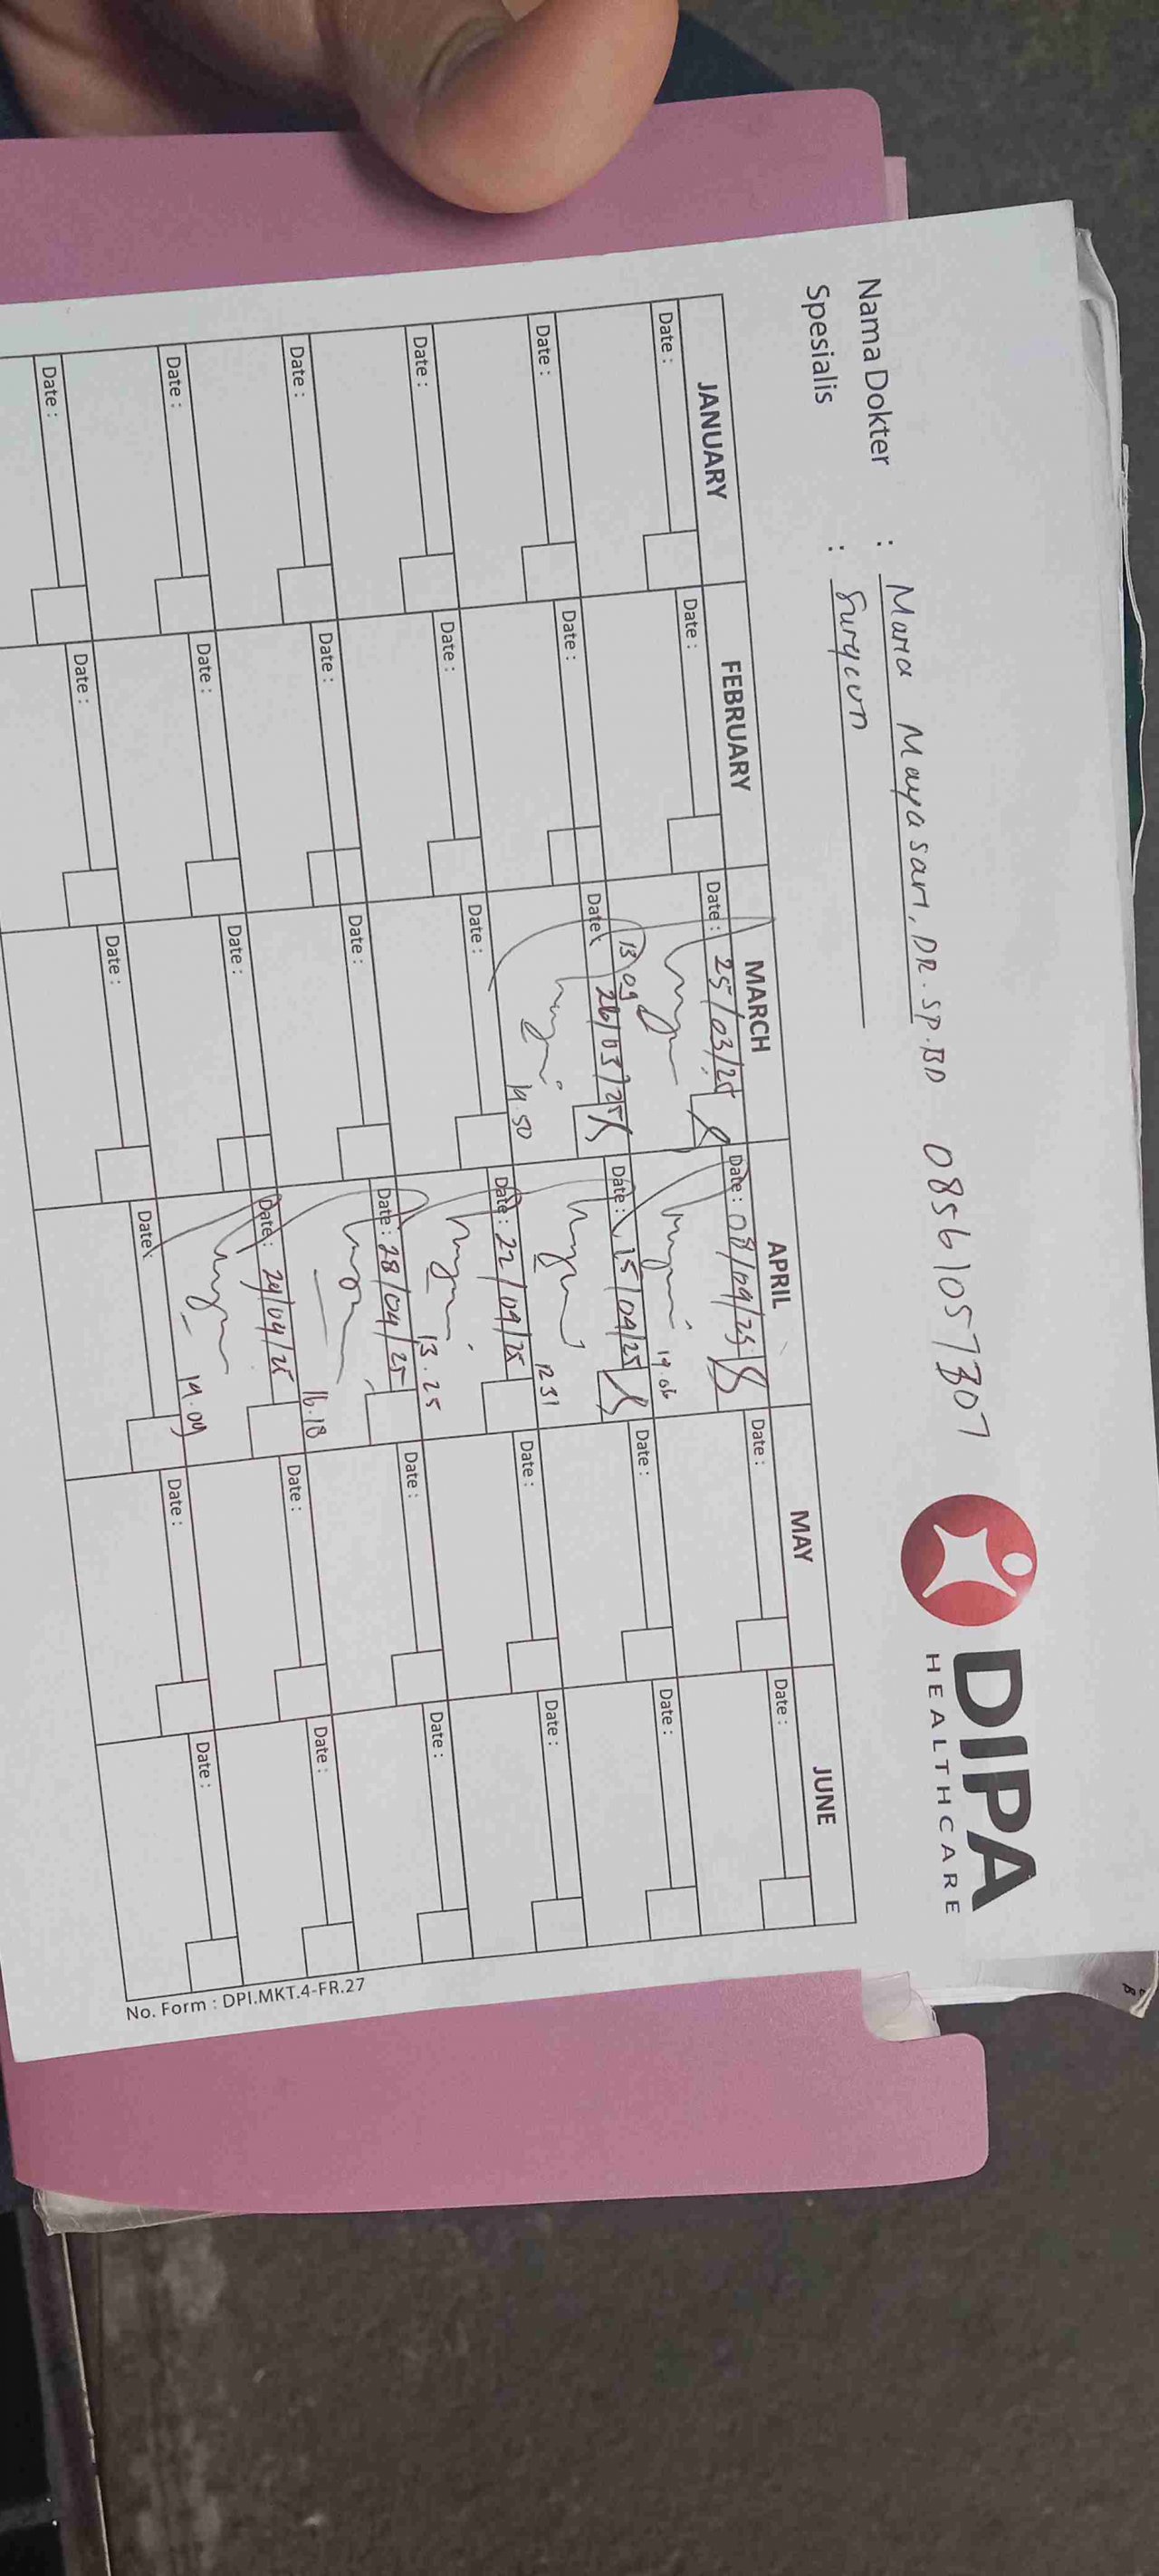 DIPA
HEALTHCARE
Nama Dokter : Maria Mayasari, DR. SP.BD 085610571307
Spesialis : Surgeon
JANUARY FEBRUARY MARCH APRIL MAY JUNE
Date : Date : Date : 25/03/25 Date : 08/04/25 Date : Date :
13.09 14.06
Date : Date : Date : 26/03/25 Date : 15/04/25 Date : Date :
14.50 12.31
Date : Date : Date : Date : 22/04/25 Date : Date :
13.25
Date : Date : Date : Date : 28/04/25 Date : Date :
16.18
Date : Date : Date : Date : 29/04/25 Date : Date :
14.09
Date : Date : Date : Date : Date : Date :
No. Form : DPI.MKT.4-FR.27